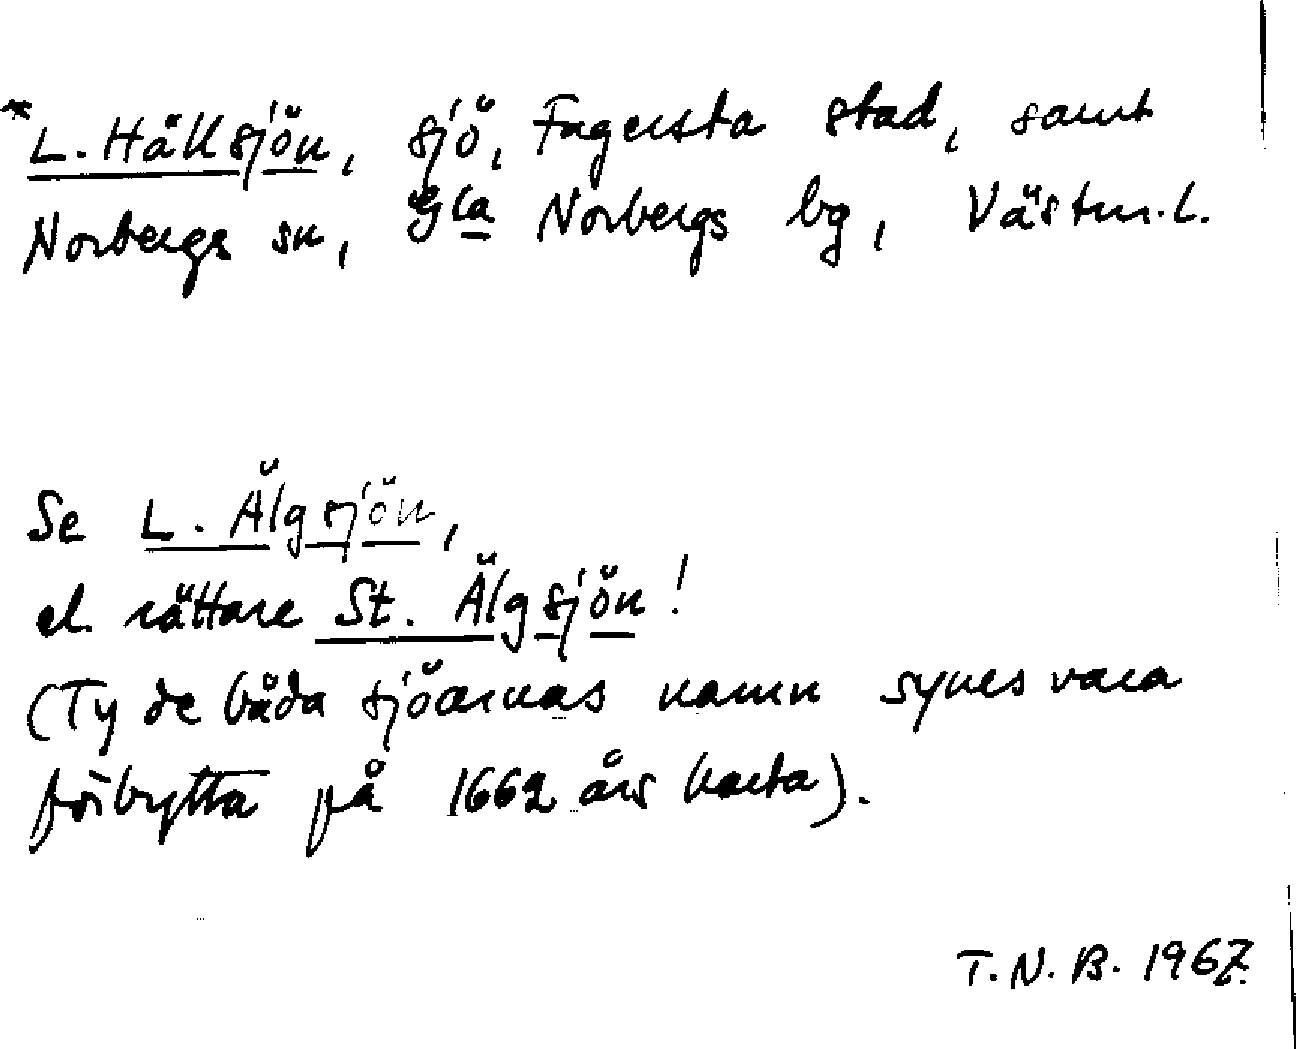 *L. Hällsjön, sjö, Fagersta stad, samt
Norbergs sn, Gla Norbergs bg, Västm. l.
Se L. Älgsjön,
el. rättare St. Älgsjön!
(Ty de båda sjöarnas namn synes vara
förbytta på 1662 års karta).
T. N. B. 1967.